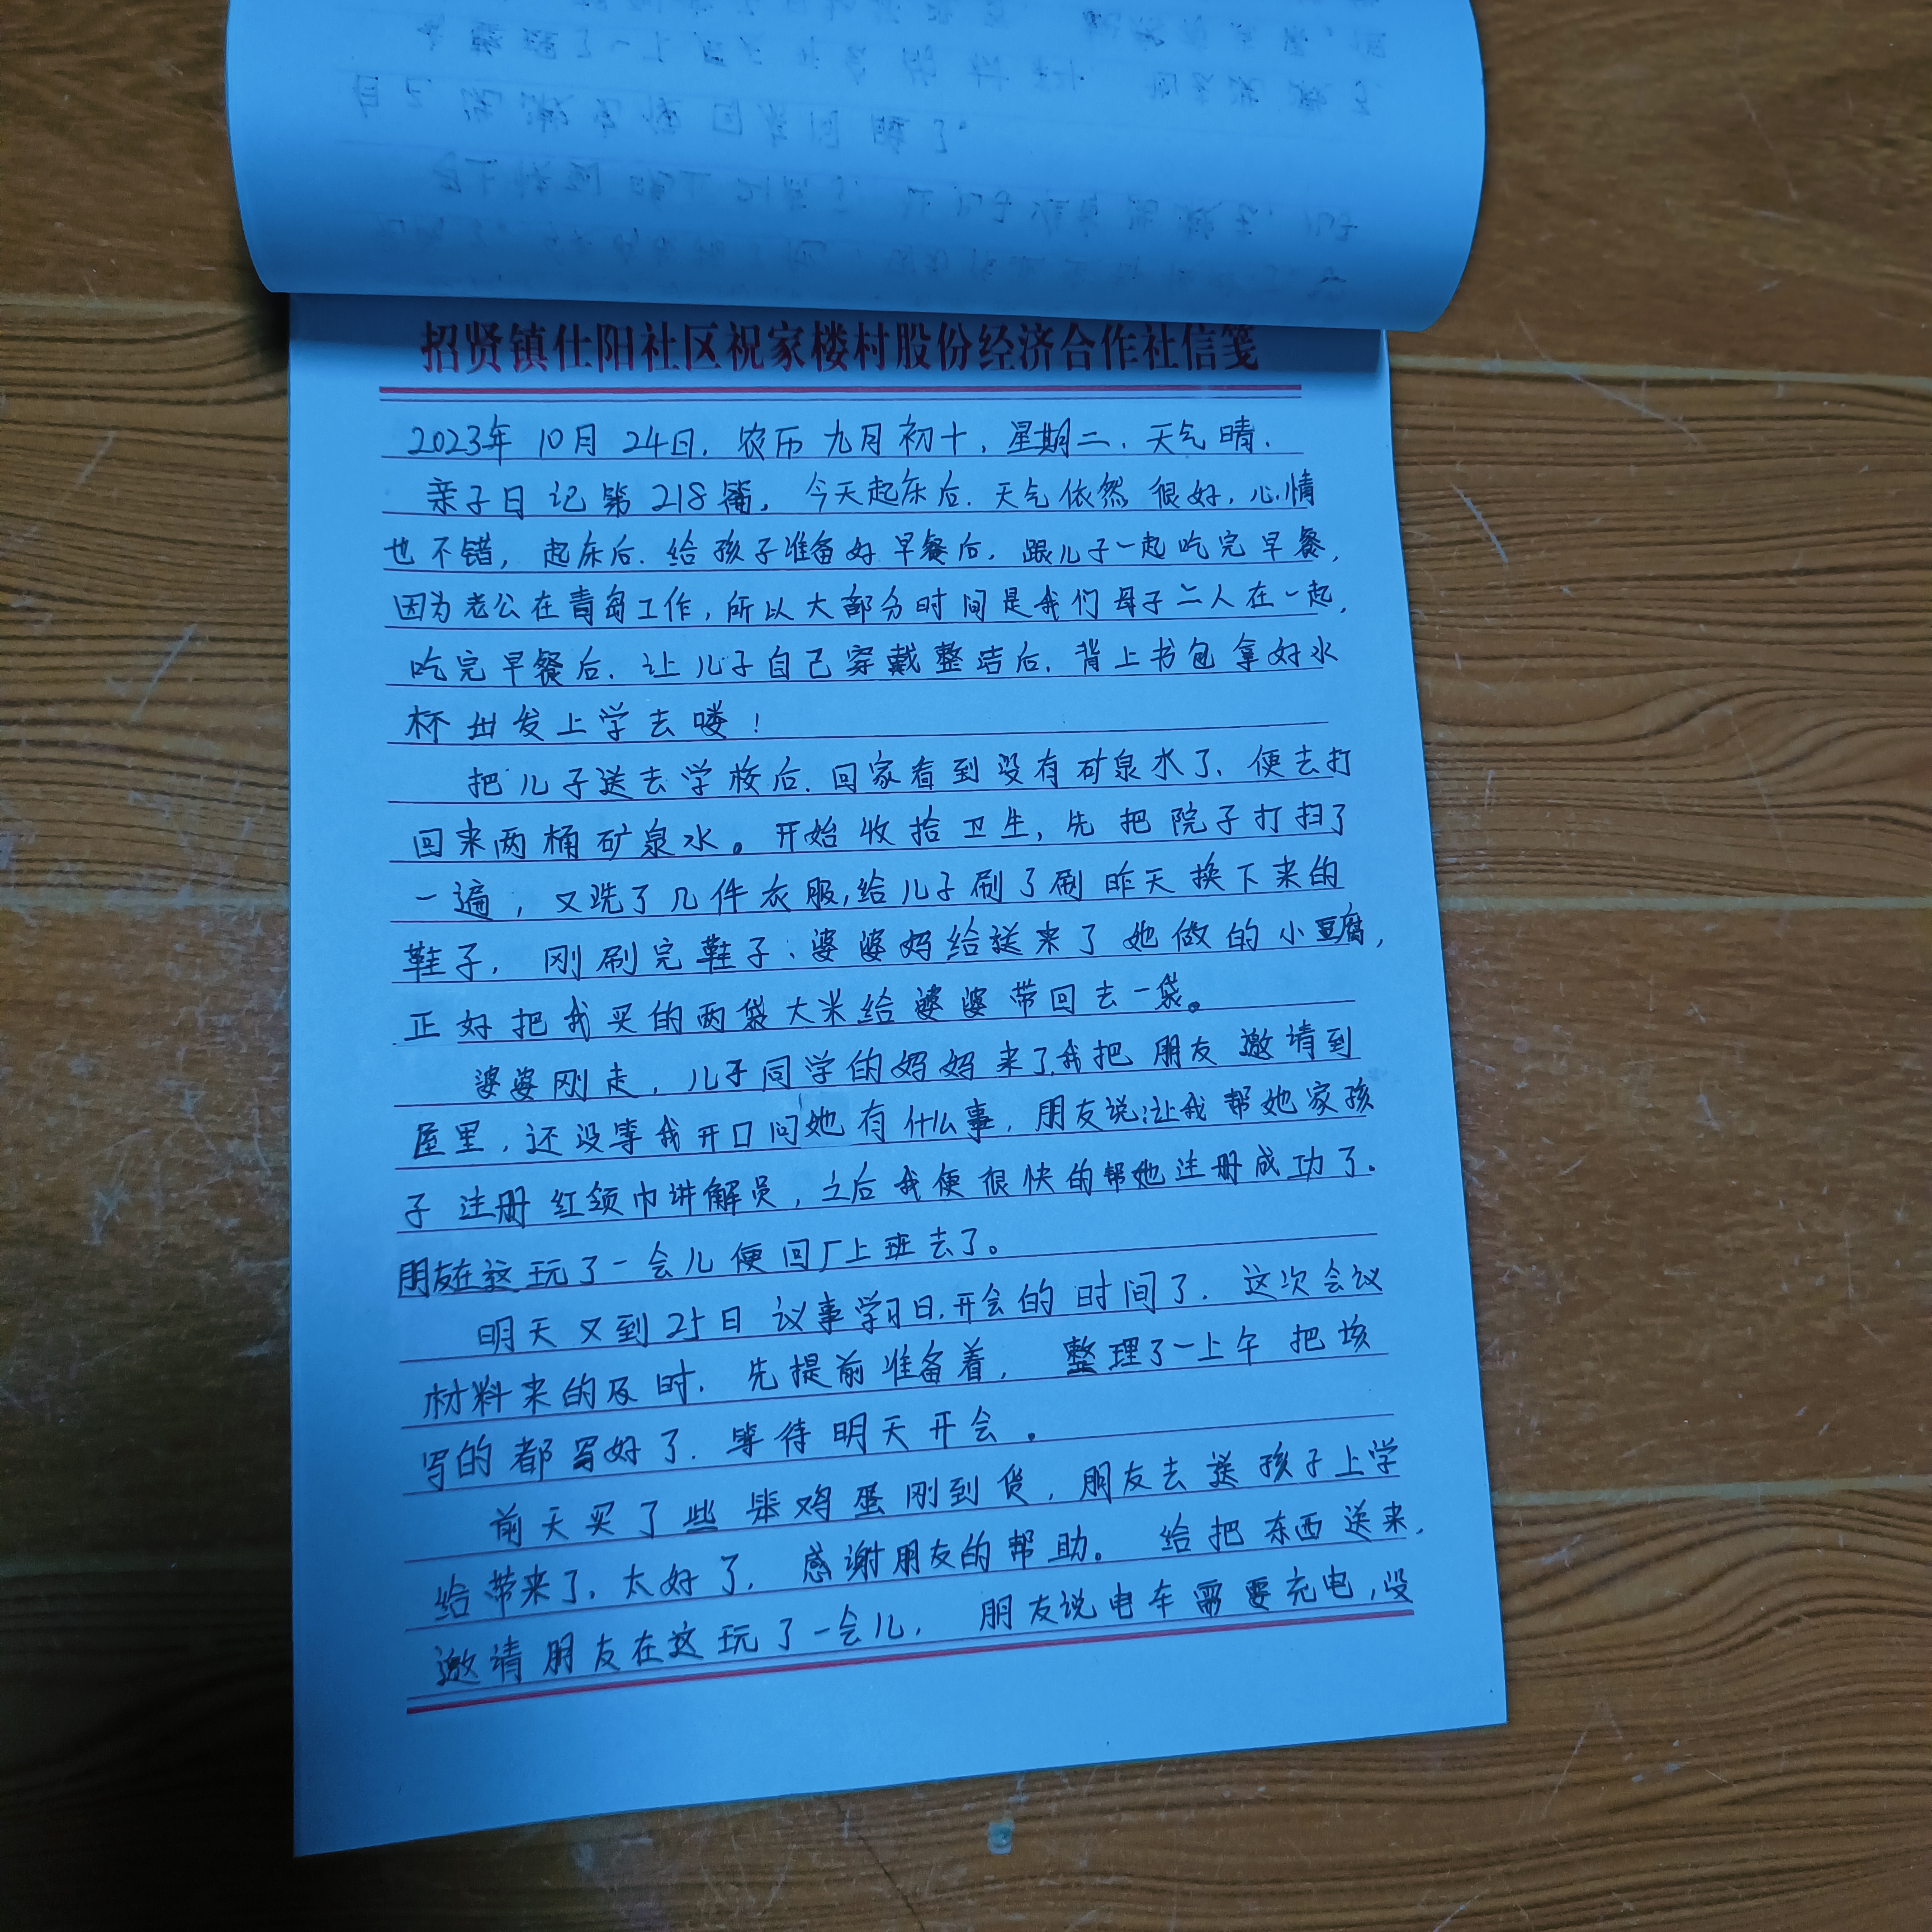 自己洗漱后便回房间睡了。
招贤镇仕阳社区祝家楼村股份经济合作社信笺
2023年10月24日.农历九月初十,星期二.天气晴.
亲子日记第218篇,今天起床后.天气依然很好,心情
也不错,起床后.给孩子准备好早餐后,跟儿子一起吃完早餐,
因为老公在青岛工作,所以大部分时间是我们母子二人在一起,
吃完早餐后.让儿子自己穿戴整洁后.背上书包拿好水
杯出发上学去喽!
把儿子送去学校后.回家看到没有矿泉水了、便去打
回来两桶矿泉水。开始收拾卫生,先把院子打扫了
一遍,又洗了几件衣服,给儿子刷了刷昨天换下来的
鞋子,刚刷完鞋子、婆婆妈给送来了她做的小豆腐,
正好把我买的两袋大米给婆婆带回去一袋。
婆婆刚走,儿子同学的妈妈来了,我把朋友邀请到
屋里,还没等我开口问她有什么事,朋友说:让我帮她家孩
子注册红领巾讲解员,之后我便很快的帮她注册成功了.
朋友在这玩了一会儿便回厂上班去了。
明天又到25日议事学习日,开会的时间了.这次会议
材料来的及时.先提前准备着,整理了一上午把该
写的都写好了.等待明天开会。
前天买了些笨鸡蛋刚到货,朋友去送孩子上学
给带来了.太好了.感谢朋友的帮助。给把东西送来,
邀请朋友在这玩了一会儿,朋友说电车需要充电,没